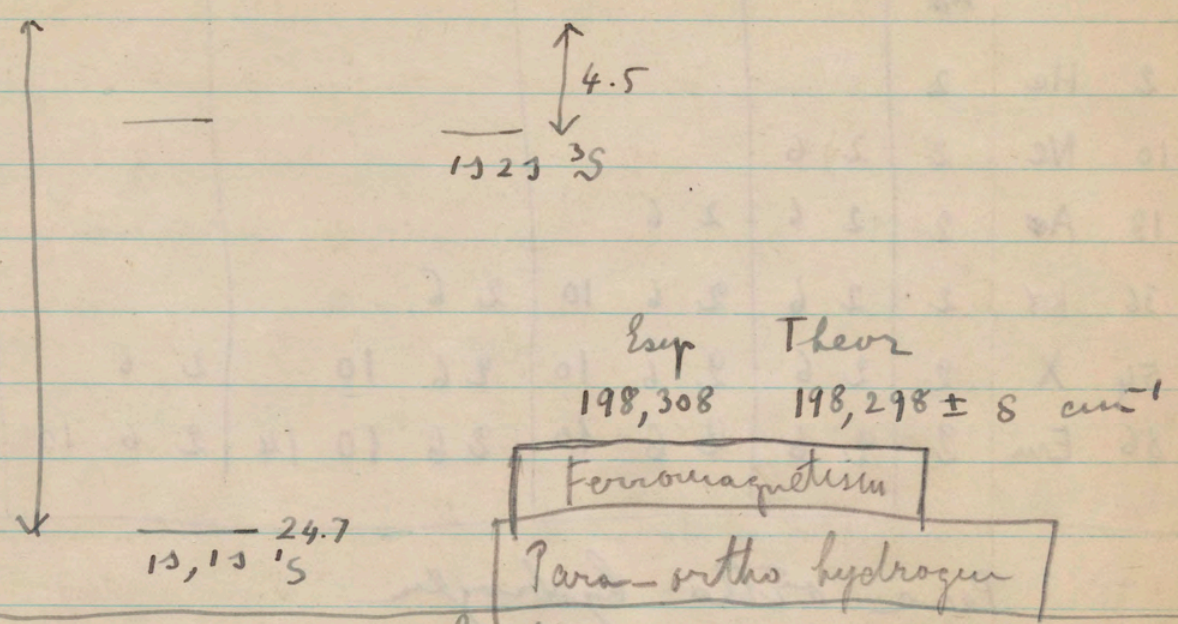 4.5
1s 2s ³S
Exp Theor
198,308 198,298 ± 8 cm⁻¹
Ferromagnetism
24.7
1s, 1s ¹S
Para-ortho hydrogen